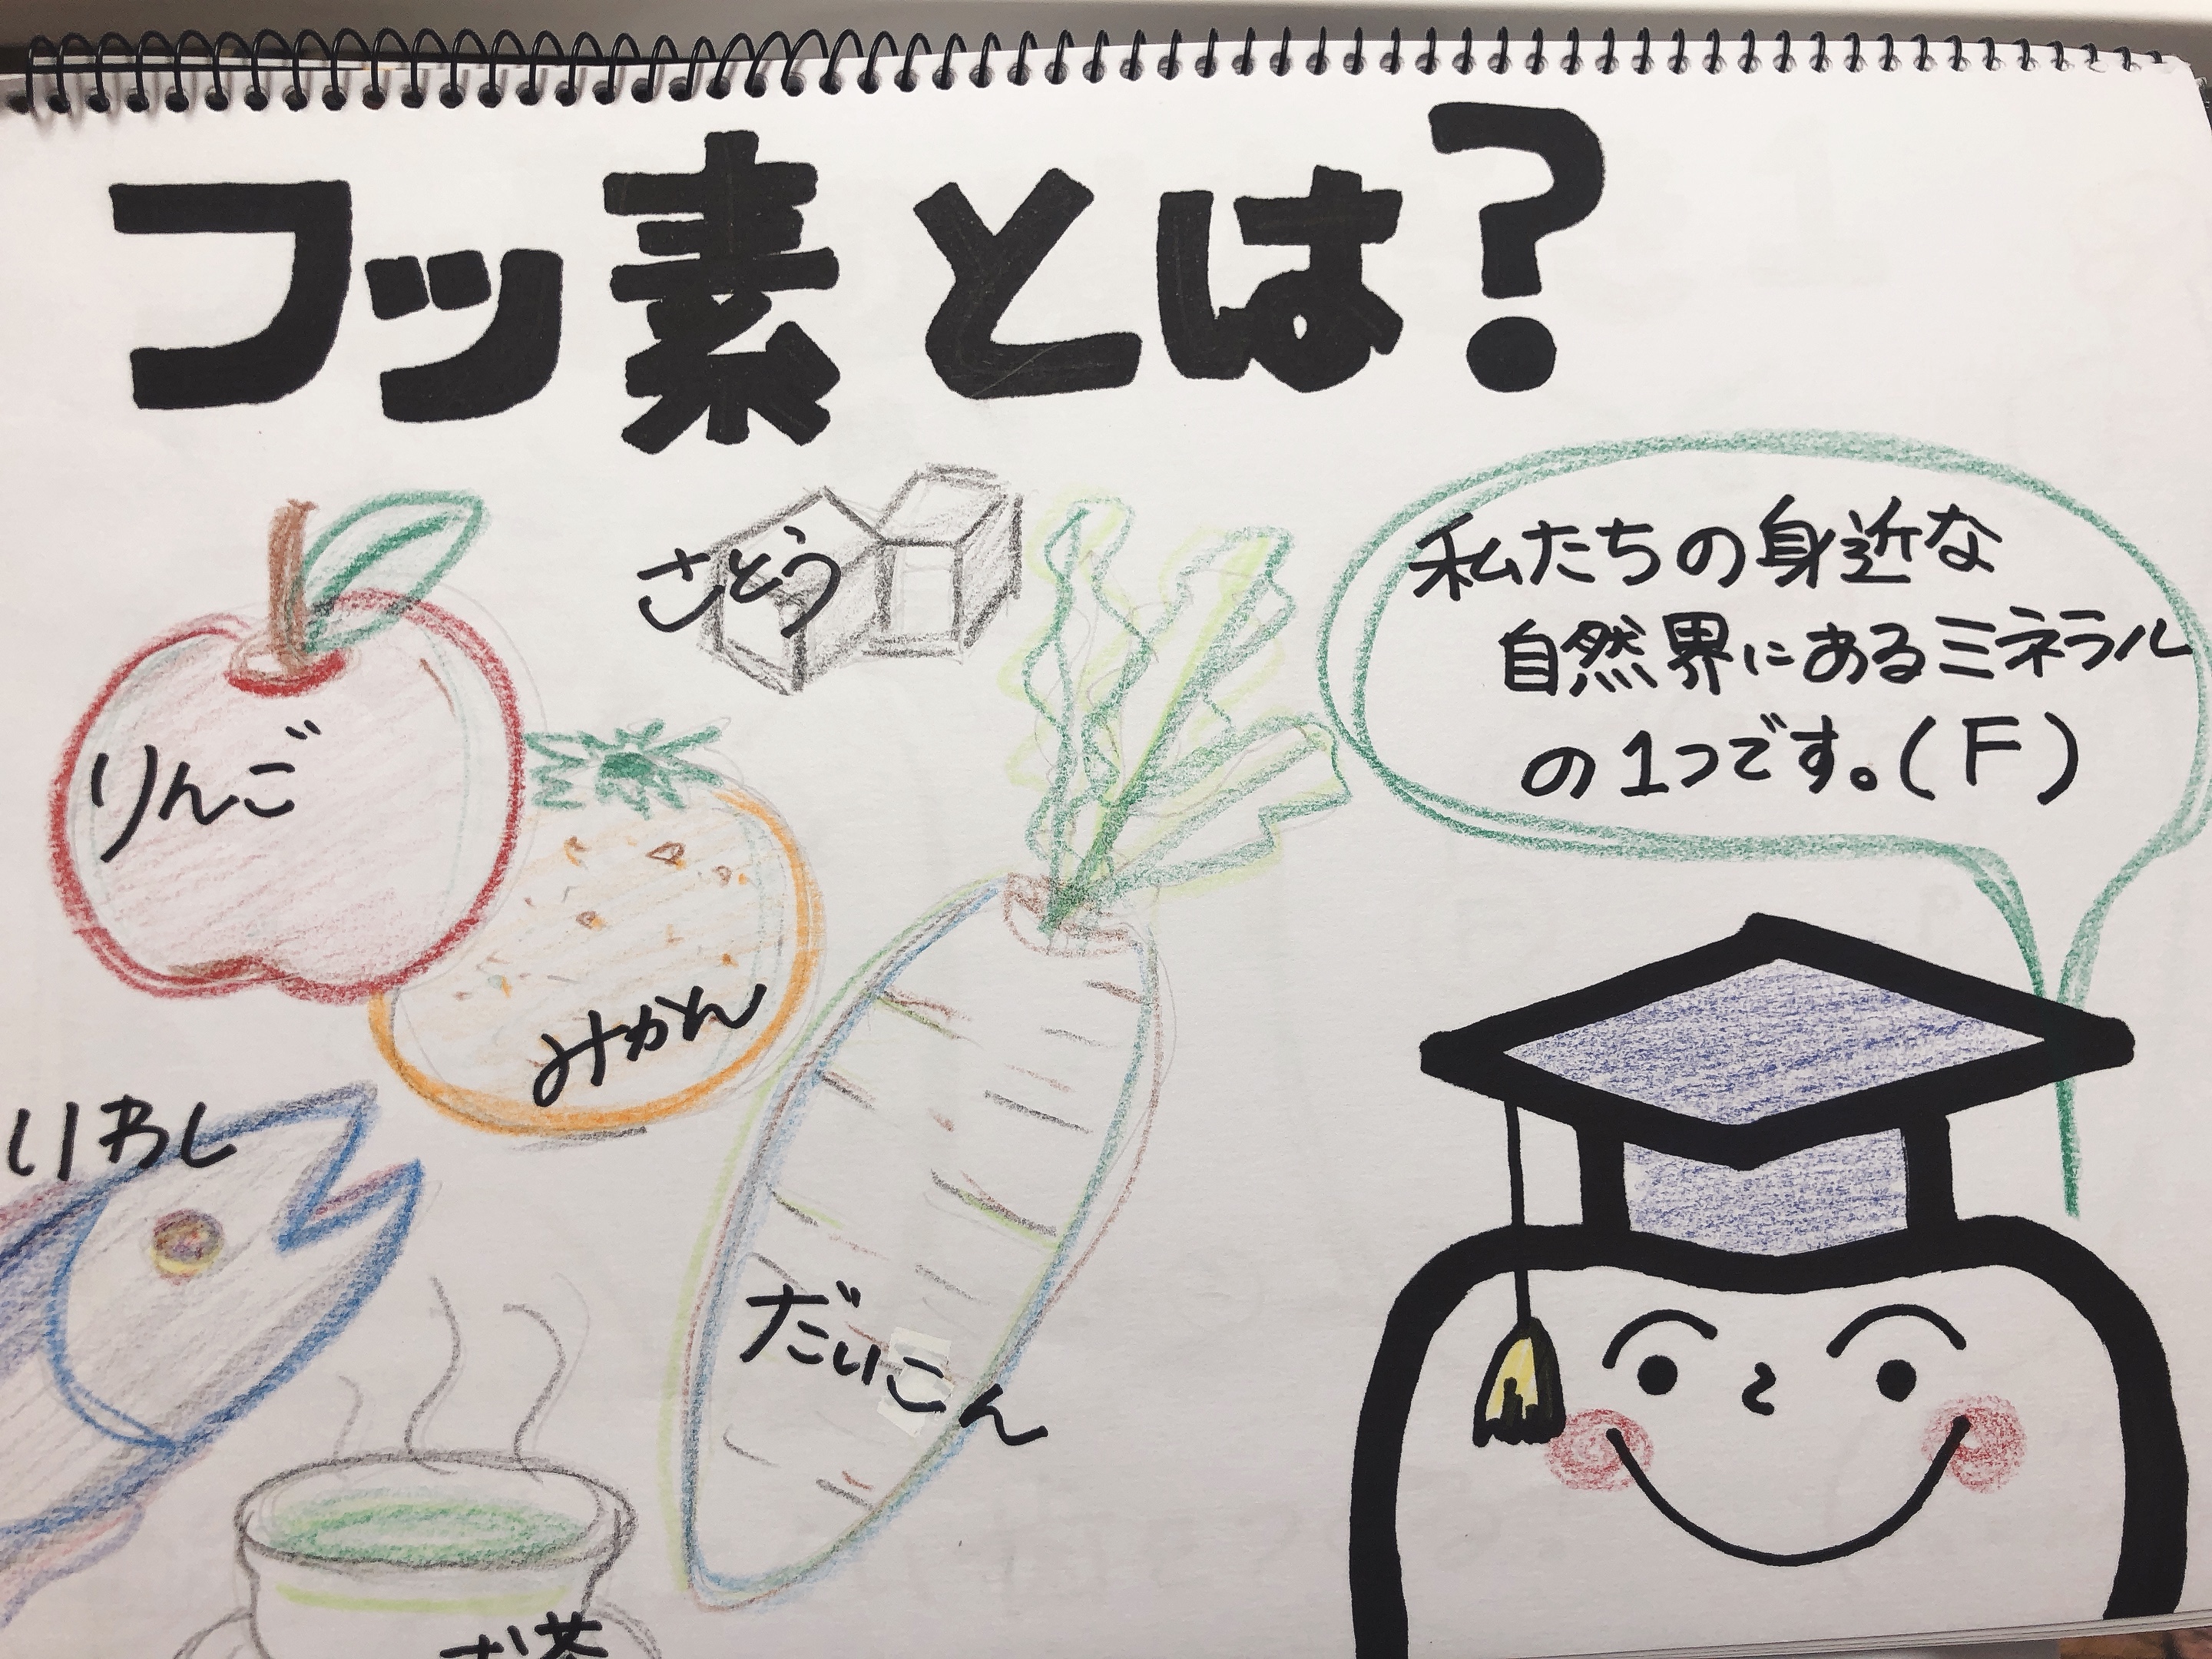 フッ素とは?
さとう
私たちの身近な
自然界にあるミネラル
の1つです。(F)
りんご
みかん
いわし
だいこん
お茶